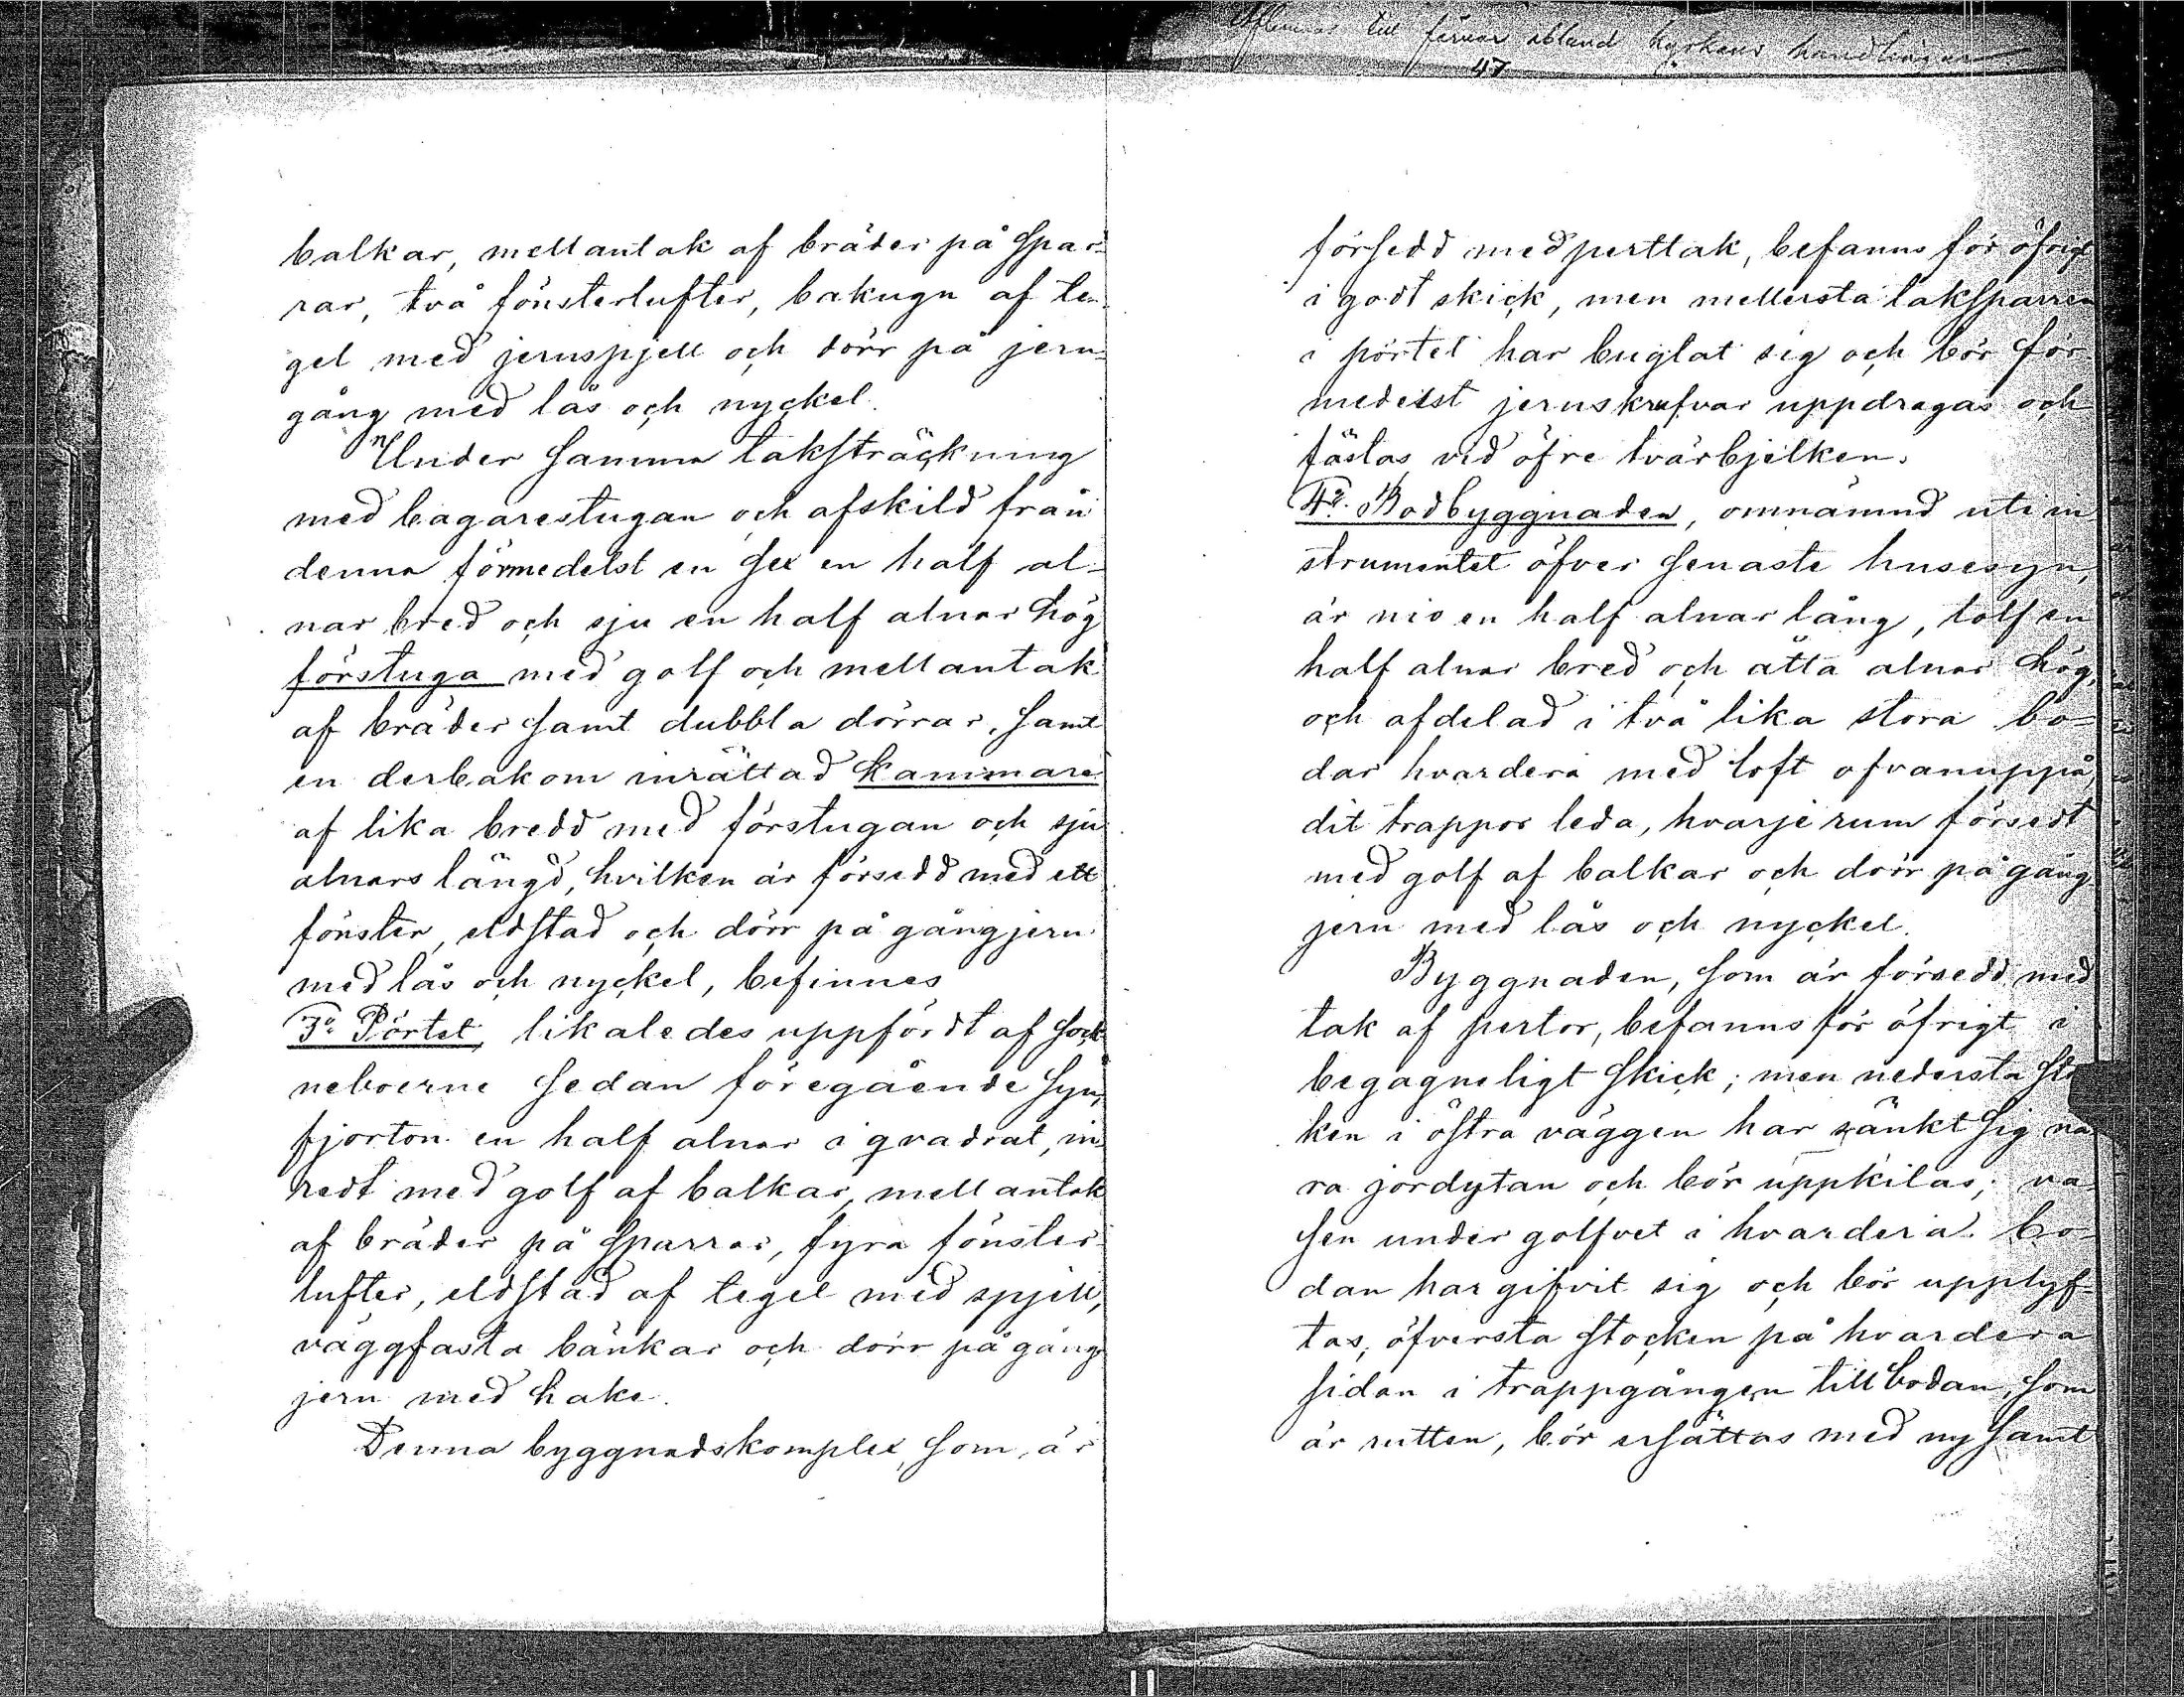 till förvar ibland kyrkans handlingar
47
balkar, mellantak af bräder på spar-
rar, två fönsterlufter, bakugn af te-
gel med jernspjell och dörr på jern-
gång med lås och nyckel.
Under samma taksträckning
med bagarestugan och afskild från
denna förmedelst en sex en half al-
nar bred och sju en half alnar hög
förstuga med golf och mellantak
af bräder samt dubbla dörrar, samt
en derbakom inrättad kammare
af lika bredd med förstugan och sju
alnars längd, hvilken är försedd med ett
fönster, eldstad och dörr på gångjern
med lås och nyckel, befinnes
3:o Pörtet, likaledes uppfördt af sock-
neboerne sedan föregående syn,
fjorton en half alnar i qvadrat, in-
redt med golf af balkar, mellantak
af bräder på sparrar, fyra fönster-
lufter, eldstad af tegel med spjell,
väggfasta bänkar och dörr på gång-
jern med hake.
Denna byggnadskomplex, som är
försedd med perttak, befanns för öfrigt
i godt skick, men mellersta taksparren
i pörtet har buglat sig och bör för-
medelst jernskrufvar uppdragas och
fästas vid öfre tvärbjelken.
4:o Bodbyggnaden, omnämnd uti in-
strumentet öfver senaste husesyn,
är nio en half alnar lång, tolf en
half alnar bred och åtta alnar hög,
och afdelad i två lika stora bo-
dar hvardera med loft ofvanuppå,
dit trappor leda, hvarje rum försedt
med golf af balkar och dörr på gång-
jern med lås och nyckel.
Byggnaden, som är försedd med
tak af pertor, befanns för öfrigt i
begagneligt skick; men nedersta sto
ken i östra väggen har sänkt sig nä
ra jordytan och bör uppkilas; va-
sen under golfvet i hvardera bo-
dan har gifvit sig och bör upplyf-
tas; öfversta stocken på hvardera
sidan i trappgången till bodan, som
är rutten, bör ersättas med ny samt